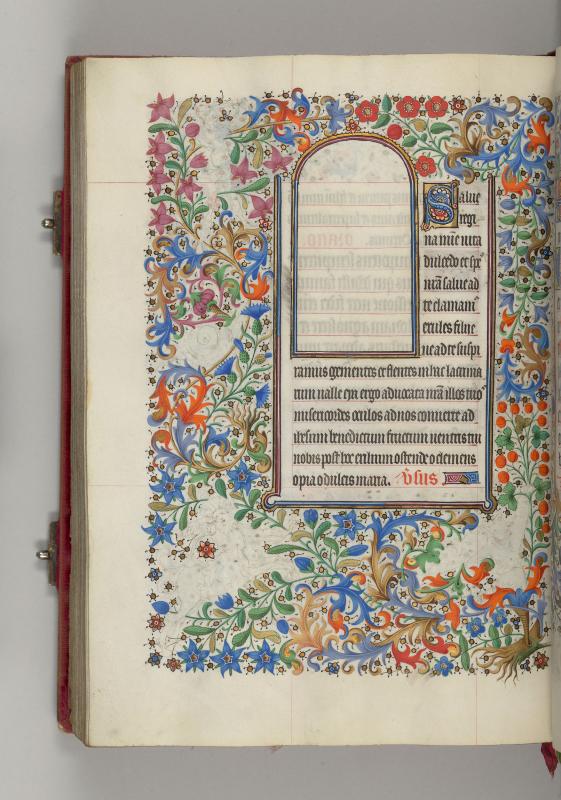 Salue
regi
na mie uita
dulcedo et spes
nrã salue ad
te clamam9
exules filii e
ue ad te suspi
ramus gementes et flentes in hac lacrima
rum ualle eya ergo aduocata nrã illos tuos
misericordes oculos ad nos conuerte ad
ihesum benedictum fructum uentris tui
nobis post hoc exilium ostende o clemens
o pia o dulcis maria. v̄sus